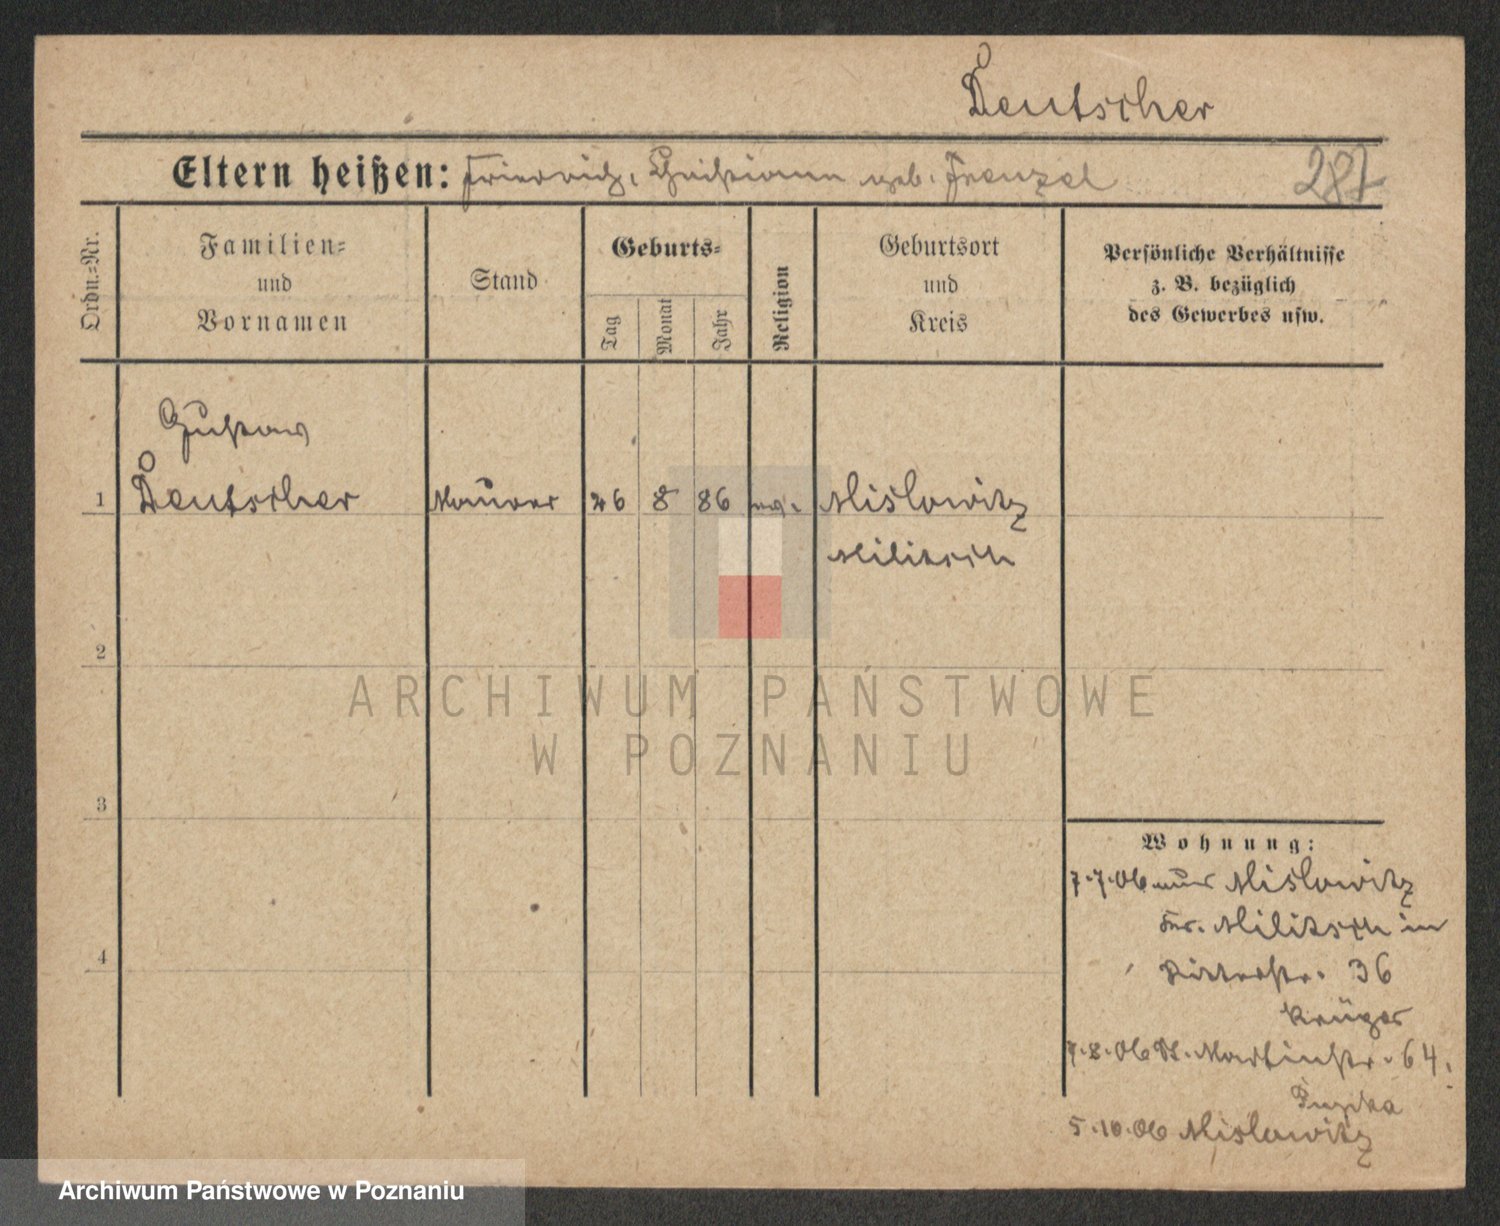 Deutscher
Eltern heißen: Friedrich, Christiane geb. Frenzel 287
Ordn.=Nr.
Familien=
und
Vornamen
Stand
Geburts=
Tag
Monat
Jahr
Religion
Geburtsort
und
Kreis
Persönliche Verhältnisse
z. B. bezüglich
des Gewerbes usw.
Gustav
1 Deutscher Maurer 26 8 86 ev. Mislawitz
Militsch
2
3
4
Wohnung:
7.7.06 aus Mislawitz
Krs. Militsch in
Ritterstr. 36
Krüger
7.8.06 St. Martinstr. 64.
5.10.06 Mislawitz
ARCHIWUM PAŃSTWOWE
W POZNANIU
Archiwum Państwowe w Poznaniu